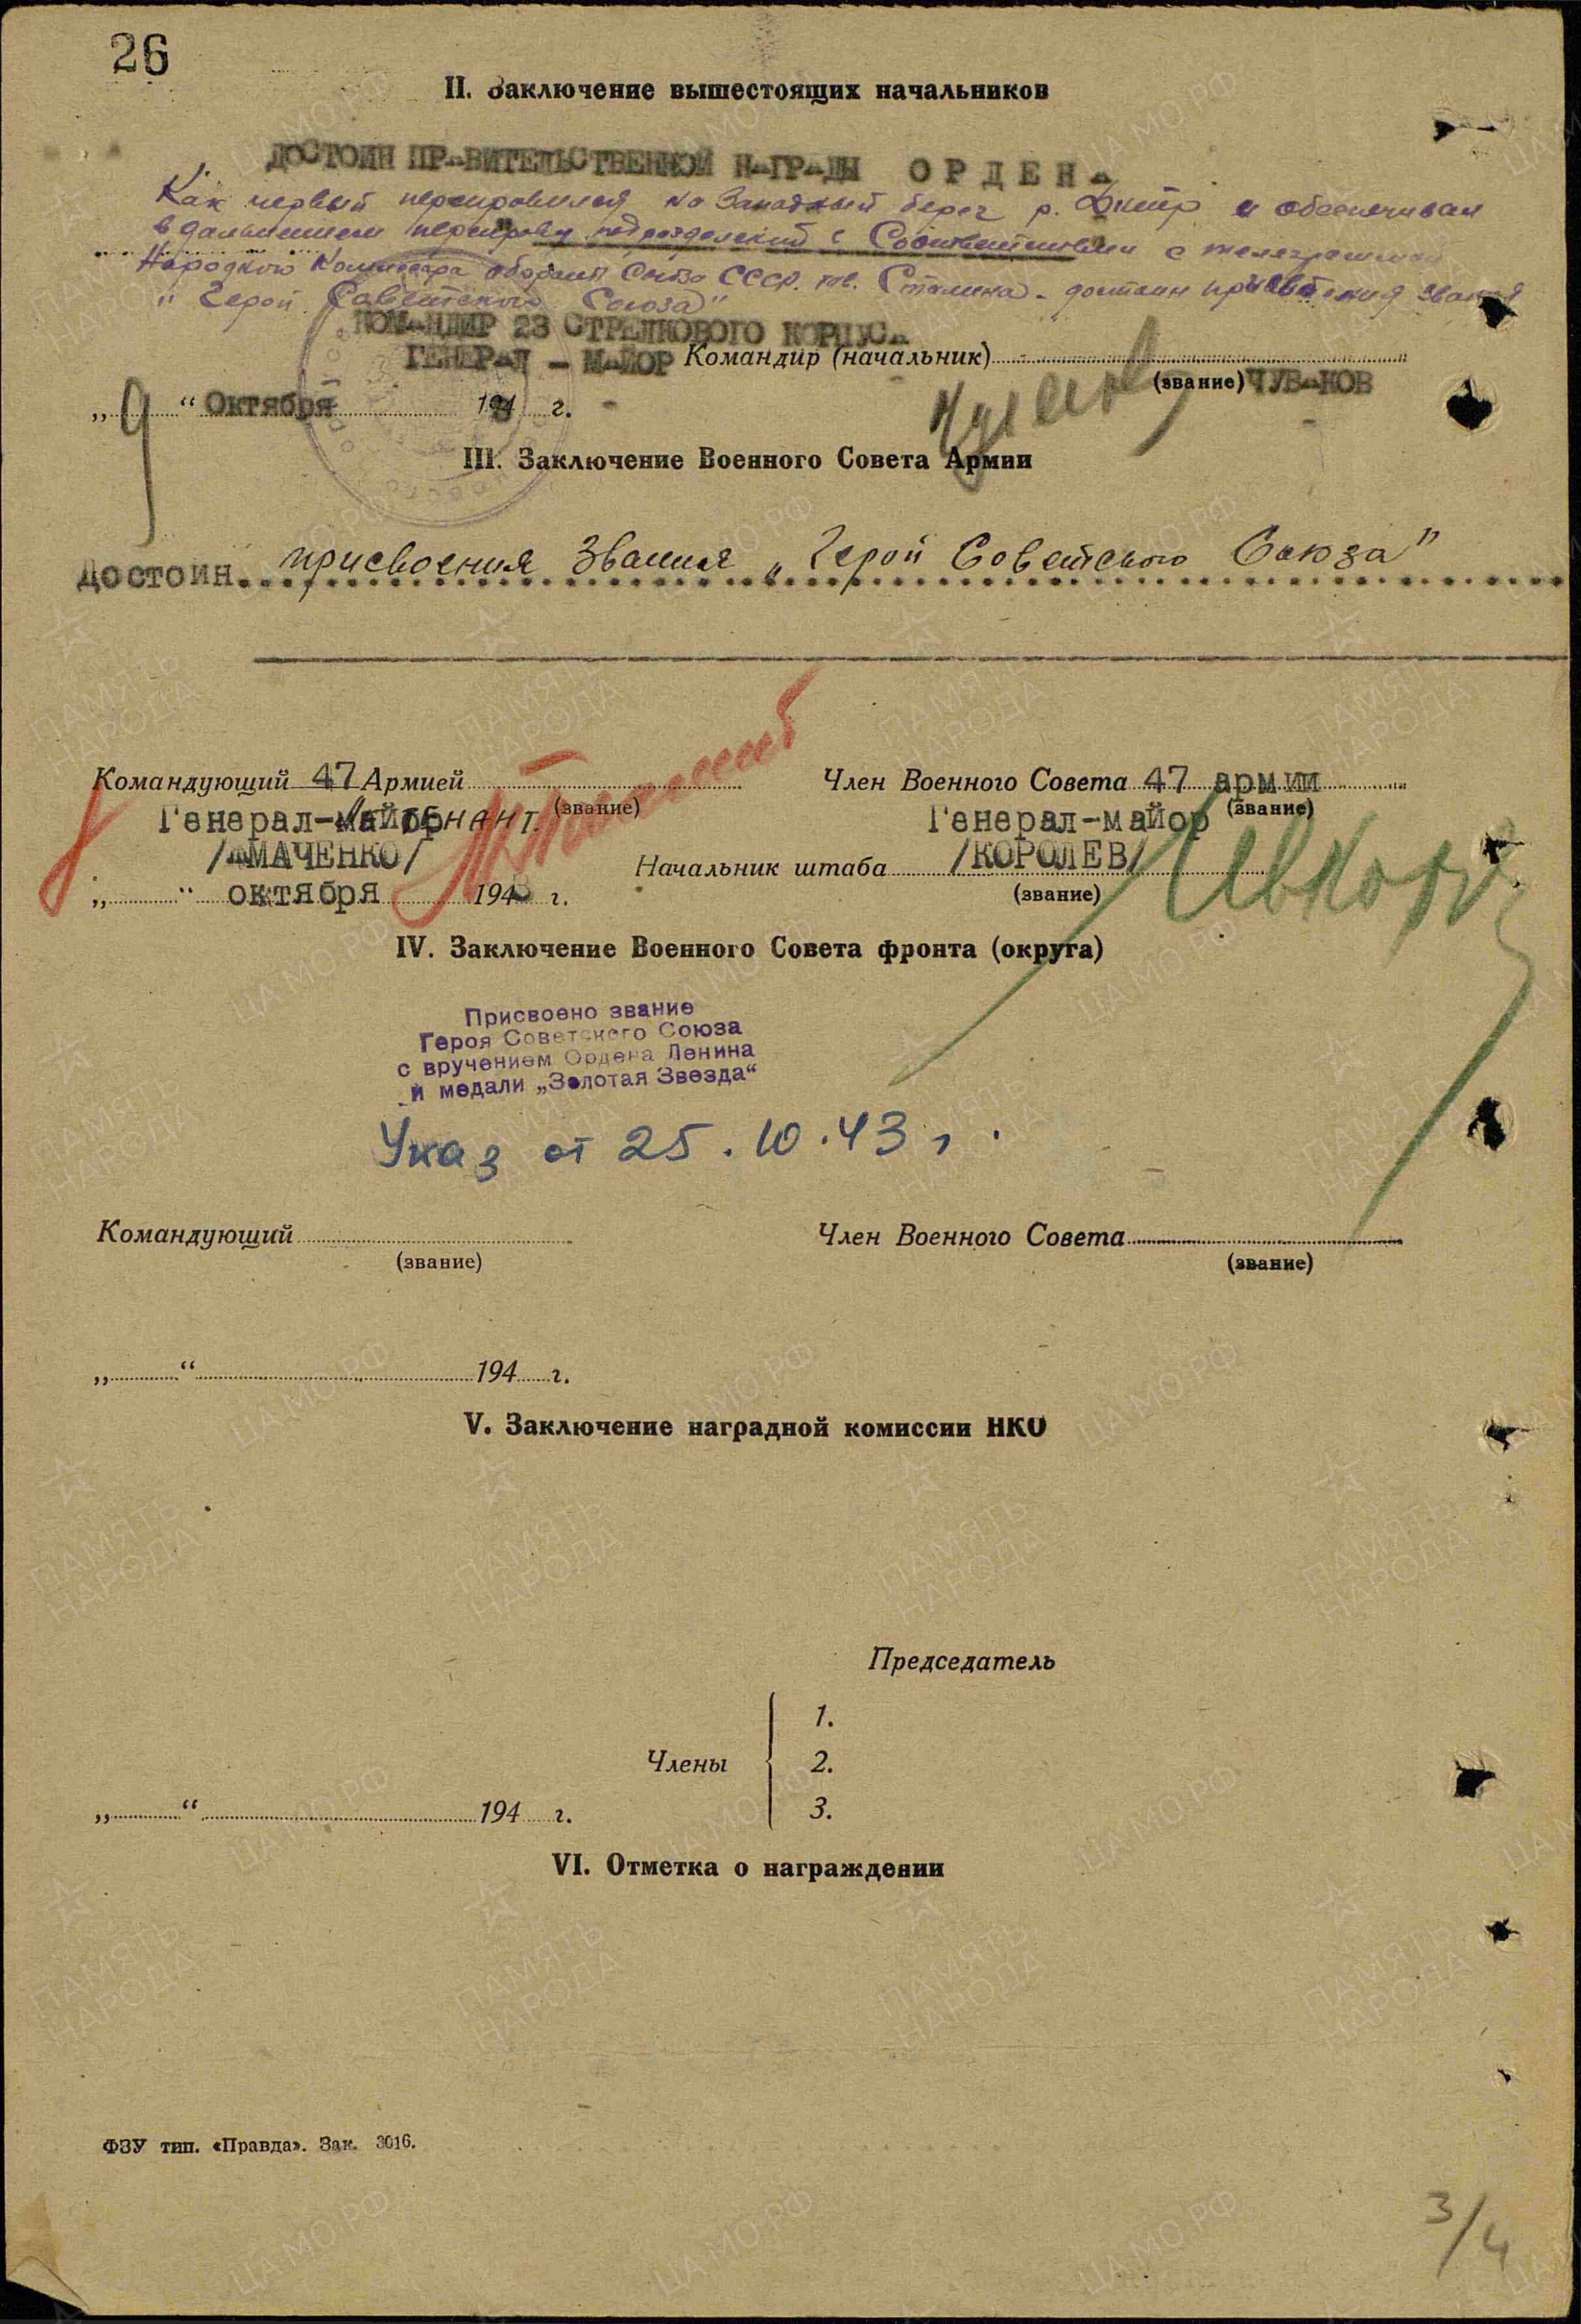 26
II. Заключение вышестоящих начальников
ДОСТОИН ПРАВИТЕЛЬСТВЕННОЙ НАГРАДЫ ОРДЕНА
Как первый переправился на Западный берег р. Днепр и обеспечивал
в дальнейшем переправу подразделений в соответствии с телеграммой
Народного Комиссара обороны Союза СССР. тов. Сталина - достоин присвоения звания
"Герой Советского Союза"
КОМАНДИР 23 СТРЕЛКОВОГО КОРПУСА
ГЕНЕРАЛ - МАЙОР Командир (начальник)
(звание) ЧУВАКОВ
„9“ Октября 1943 г.
III. Заключение Военного Совета Армии
Достоин присвоения звания „Герой Советского Союза"
Командующий 47 Армией
(звание)
Генерал-лейтенант
Член Военного Совета 47 армии
(звание)
Генерал-майор
/КОРОЛЕВ/
Начальник штаба
(звание)
„ “ октября 1943 г.
IV. Заключение Военного Совета фронта (округа)
Присвоено звание
Героя Советского Союза
с вручением Ордена Ленина
и медали „Золотая Звезда“
Указ от 25.10.43 г.
Командующий
(звание)
Член Военного Совета
(звание)
„ “ 194 г.
V. Заключение наградной комиссии НКО
Председатель
Члены
1.
2.
3.
„ “ 194 г.
VI. Отметка о награждении
ФЗУ тип. «Правда». Зак. 3016.
3/4
ПАМЯТЬ НАРОДА
ЦА МО РФ